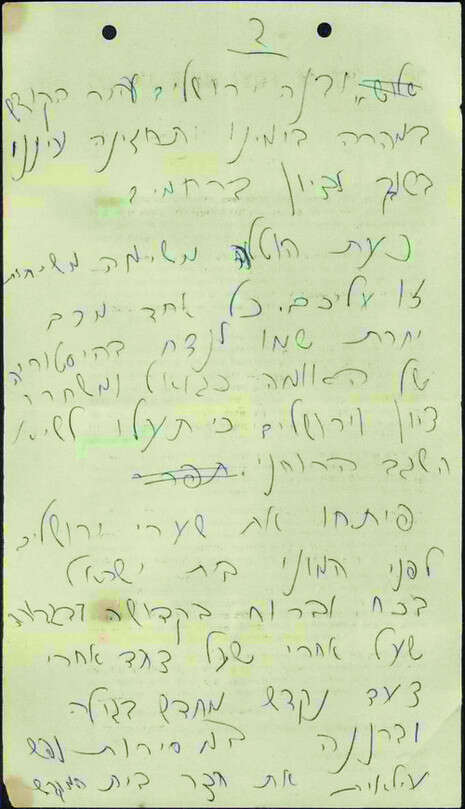 ובנה ירושלים עיר הקודש
במהרה בימינו ותחזינה עיננו
בשובך לציון ברחמים
כעת הוטלה משימה משיחית
זו עליכם. כל אחד מכם
יחרת שמו לנצח בהיסטוריה
של האומה כגואל ומשחרר
ציון וירושלים כי תעלו לשיא
השגב הרוחני.
פיתחו את שערי ירושלים
לפני המוני בית ישראל
בכח וברוח בקדושה
שעל אחרי שעל צעד אחרי
צעד נקדש מחדש בגילה
וברננה במסירות נפש
עילאית את חצר בית המקדש